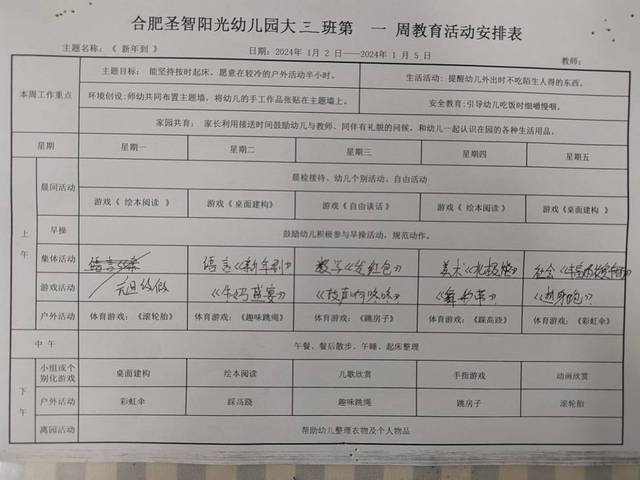 合肥圣智阳光幼儿园大 三 班第 一 周教育活动安排表
主题名称：《 新年到 》 日期：2024年 1 月 2 日——2024年 1 月 5 日 教师：
本周工作重点
主题目标： 能坚持按时起床，愿意在较冷的户外活动半小时。 生活活动：提醒幼儿外出时不吃陌生人得的东西。
环境创设：师幼共同布置主题墙，将幼儿的手工作品张贴在主题墙上。 安全教育：引导幼儿吃饭时细嚼慢咽。
家园共育： 家长利用接送时间鼓励幼儿与教师、同伴有礼貌的问候，和幼儿一起认识在园的各种生活用品。
星期 星期一 星期二 星期三 星期四 星期五
上午
晨间活动 晨检接待、幼儿个别活动、自由活动
游戏《 绘本阅读 》 游戏《桌面建构》 游戏《 自由谈话 》 游戏《 绘本阅读 》 游戏《桌面建构 》
早操 鼓励幼儿积极参与早操活动，规范动作。
集体活动 语言 语言《新年到》 数学《发红包》 美术 社会
游戏活动 元旦放假
户外活动 体育游戏：《滚轮胎》 体育游戏：《趣味跳绳》 体育游戏：《跳房子》 体育游戏：《踩高跷》 体育游戏：《彩虹伞》
中 午 午餐、餐后散步、午睡、起床整理
下午
小组或个别化游戏 桌面建构 绘本阅读 儿歌欣赏 手指游戏 动画欣赏
户外活动 彩虹伞 踩高跷 趣味跳绳 跳房子 滚轮胎
离园活动 帮助幼儿整理衣物及个人物品